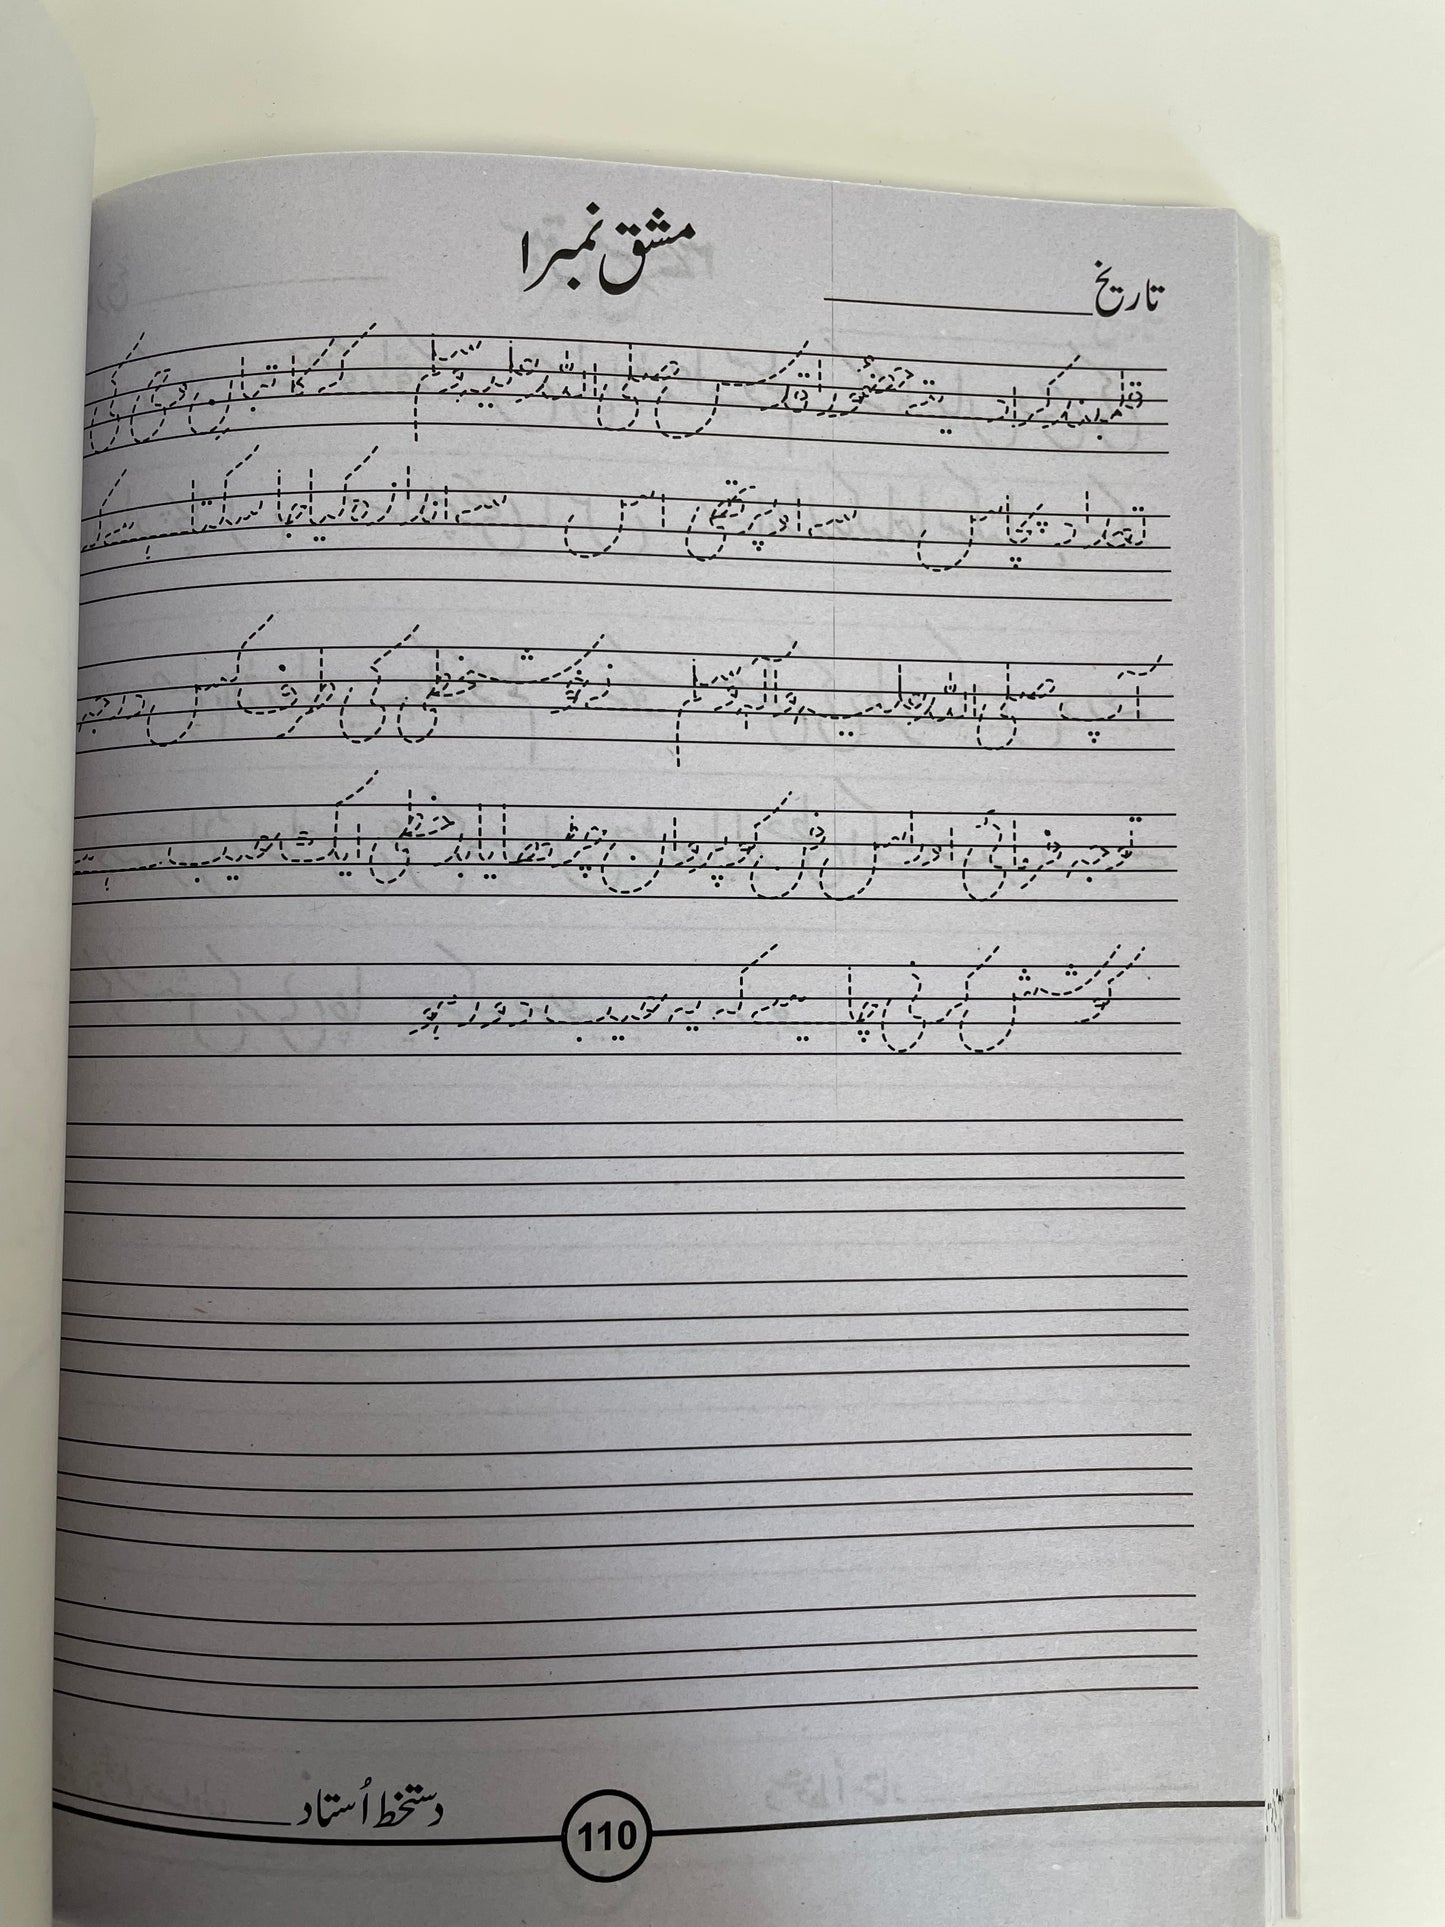 مشق نمبر ۱
تاریخ
قلمبند کرا دیتے حضور اقدس صلی اللہ علیہ وسلم کے کاتبان وحی کی
تعداد چالیس سے اوپر تھی اس سے اندازہ کیا جا سکتا ہے کہ
آپ صلی اللہ علیہ وآلہ وسلم خوشخطی کی طرف کس درجہ
توجہ فرمائی اور اس فن کو پروان چڑھایا بدخطی ایک عیب ہے
کوشش کرنی چاہیے کہ یہ عیب دور ہو
دستخط اُستاد
110